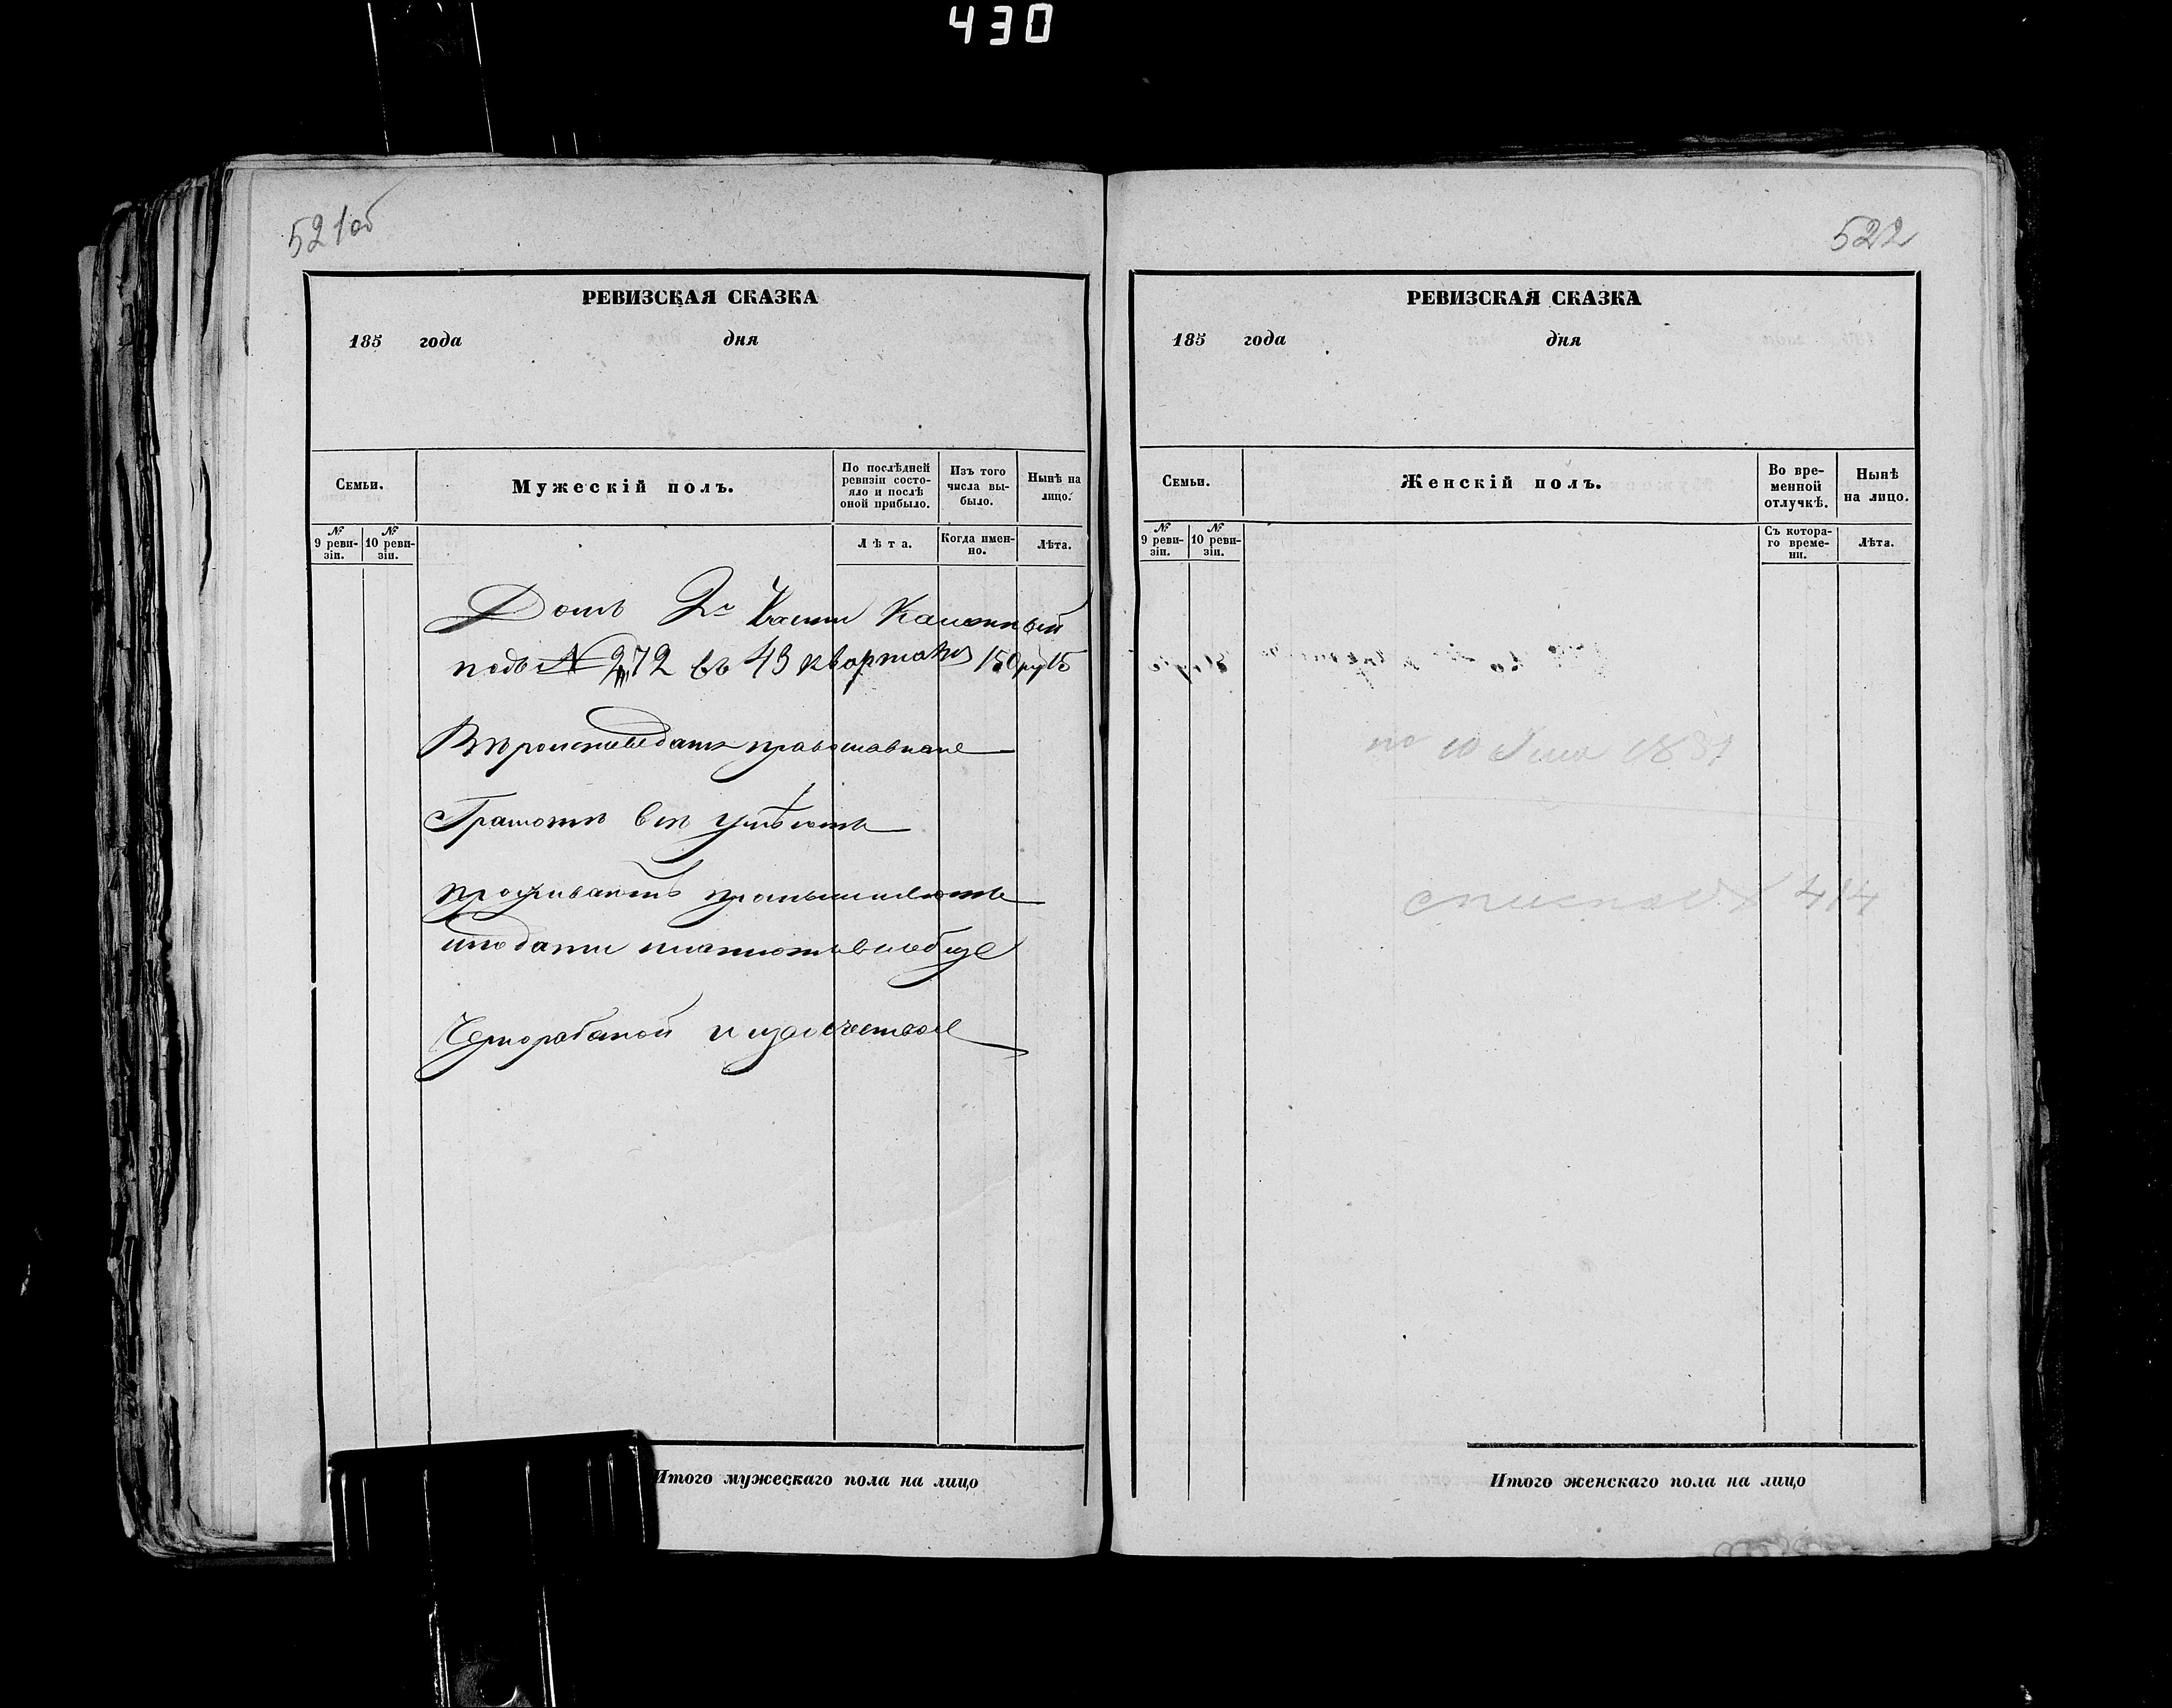 430
521 об
РЕВИЗСКАЯ СКАЗКА
185 года дня
Семьи.
Мужескій полъ.
По послѣдней
ревизіи состо-
яло и послѣ
оной прибыло.
Изъ того
числа вы-
было.
Нынѣ на
лицо.
№
9 реви-
зіи.
№
10 реви-
зіи.
Лѣта.
Когда имен-
но.
Лѣта.
Домъ 2й Части Каменный
подъ № 272 въ 43 квартале 150 руб
Вѣроисповеданія православнаго
Грамотѣ всѣ умѣютъ
проживаютъ промышляютъ
и подати платютъ вообще
Чернорабочей и извозчествомъ
Итого мужескаго пола на лицо
522
РЕВИЗСКАЯ СКАЗКА
185 года дня
Семьи.
Женскій полъ.
Во вре-
менной
отлучкѣ.
Нынѣ
на лицо.
№
9 реви-
зіи.
№
10 реви-
зіи.
Съ котора-
го време-
ни.
Лѣта.
по 10
414
Итого женскаго пола на лицо